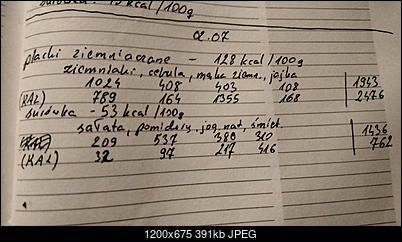 kcal/100g
02.07
placki ziemniaczane - 128 kcal/100g
ziemniaki, cebula, mąka ziemn., jajka
1024 408 403 108 1943
(KAL) 789 164 1355 168 2476
surówka - 53 kcal/100g
sałata, pomidory, jog. nat, śmiet.
209 537 380 310 1436
(KAL) 32 97 217 416 762
1200x675 391kb JPEG